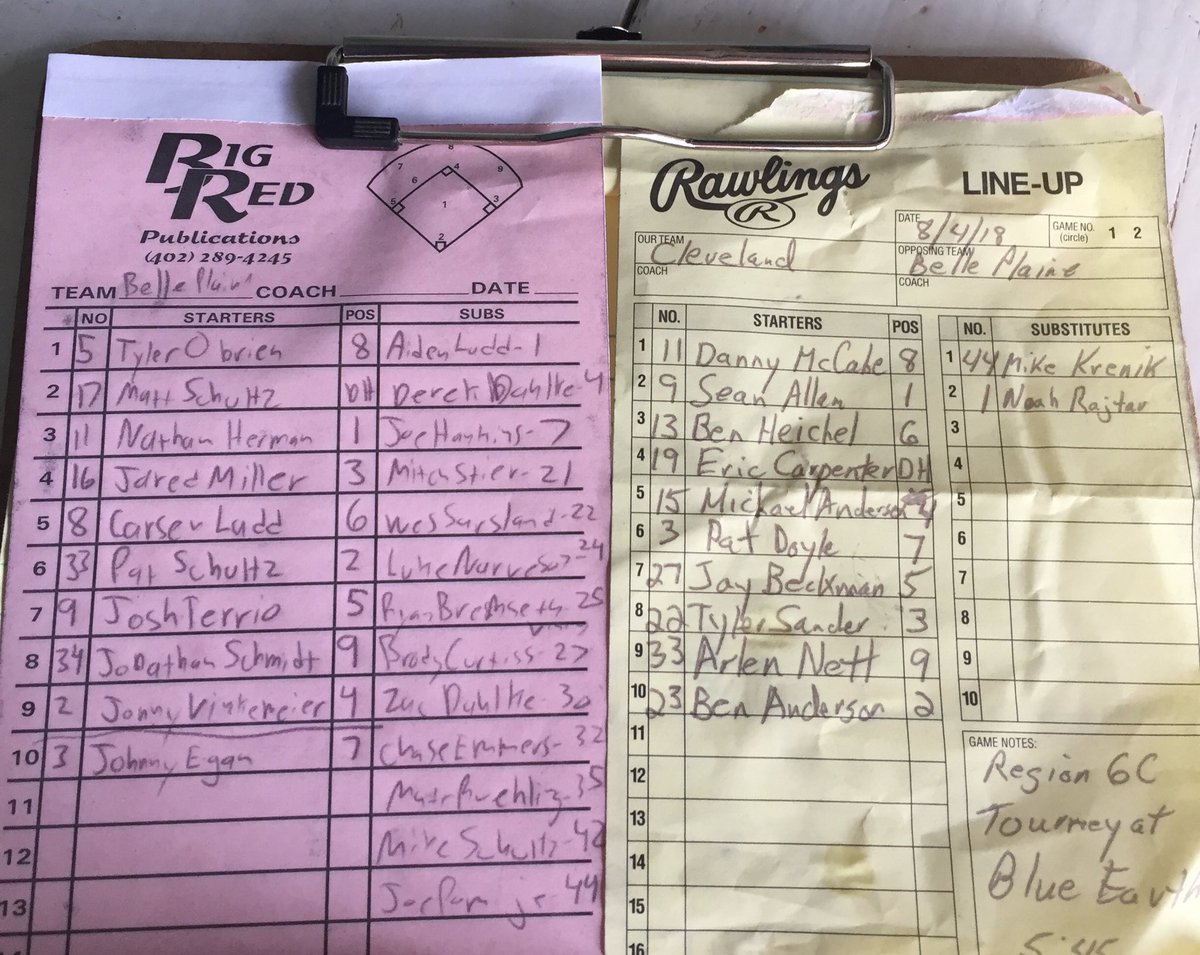 RIG
RED
Publications
(402) 289-4245
7 8 9
6 4
5 1 3
2
TEAM Belle Plaine COACH DATE
NO STARTERS POS SUBS
1 5 Tyler O brien 8 Aiden Ludd - 1
2 17 Matt Schultz DH Derek Dahlke - 4
3 11 Nathan Herman 1 Joe Hankins - 7
4 16 Jared Miller 3 Mitch Stier - 21
5 8 Carser Ludd 6 Wes Sarsland - 22
6 33 Pat Schultz 2 Luke Narveson - 24
7 9 Josh Terrio 5 Ryan - 25
8 34 Jonathan Schmidt 9 Brody Curtiss - 27
9 2 Jonny Vinkemeier 4 Zac Dahlke - 30
10 3 Johnny Egan 7 Chase Emmers - 32
11 - 35
12 Mike Schultz - 42
13 Joe jr - 44
Rawlings
R
LINE-UP
OUR TEAM Cleveland
COACH
DATE 8/4/18
GAME NO. (circle) 1 2
OPPOSING TEAM Belle Plaine
COACH
NO. STARTERS POS
1 11 Danny McCabe 8
2 9 Sean Allen 1
3 13 Ben Heichel 6
4 19 Eric Carpenter DH
5 15 Michael Anderson 4
6 3 Pat Doyle 7
7 27 Jay Beckman 5
8 22 Tyler Sander 3
9 33 Arlen Nett 9
10 23 Ben Anderson 2
11
12
13
14
15
16
NO. SUBSTITUTES
1 44 Mike Krenik
2 1 Noah Rajtar
3
4
5
6
7
8
9
10
GAME NOTES:
Region 6C
Tourney at
Blue Earth
5:45